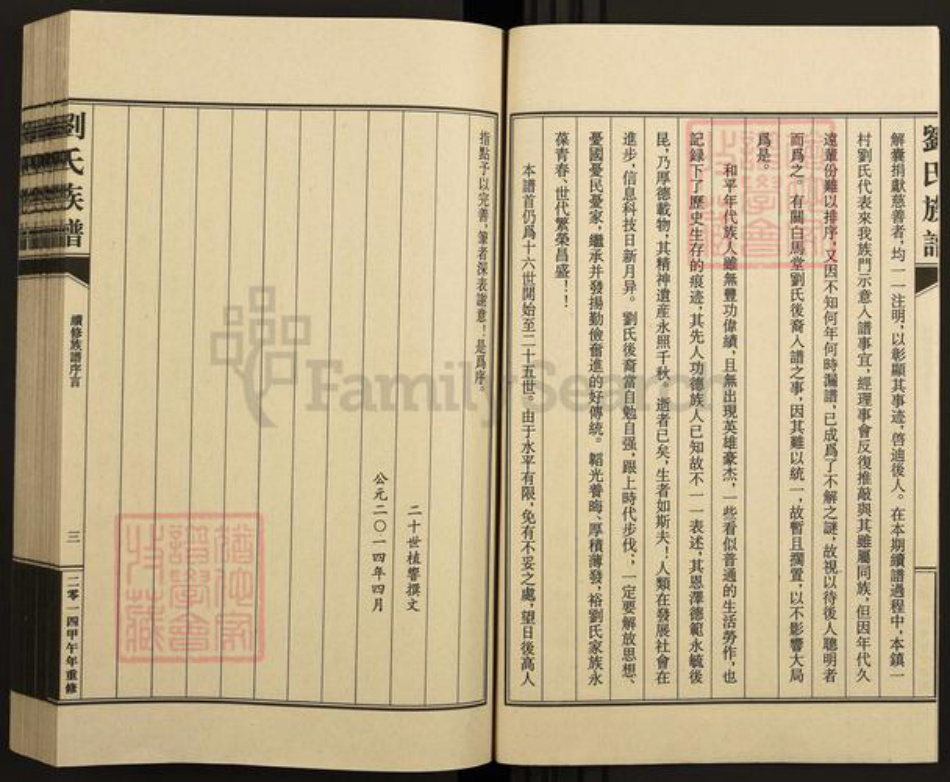 劉氏族譜
解囊捐獻慈善者，均一一注明，以彰顯其事迹，啓迪後人。在本期續譜過程中，本鎮一
村劉氏代表來我族門示意入譜事宜，經理事會反復推敲與其雖屬同族，但因年代久
遠輩份難以排序，又因不知何年何時漏譜，已成爲了不解之謎，故視以待後人聰明者
而爲之。有關白馬堂劉氏後裔入譜之事，因其難以統一，故暫且擱置，以不影響大局
爲是。
和平年代族人雖無豐功偉績，且無出現英雄豪杰，一些看似普通的生活勞作，也
記録下了歷史生存的痕迹，其先人功德族人已知故不一一表述，其恩澤德範永毓後
昆，乃厚德載物，其精神遺産永照千秋。逝者已矣，生者如斯夫！人類在發展社會在
進步，信息科技日新月异。劉氏後裔當自勉自强，跟上時代步伐；一定要解放思想、
憂國憂民憂家，繼承并發揚勤儉奮進的好傳統。韜光養晦、厚積薄發，裕劉氏家族永
葆青春、世代繁榮昌盛！！
本譜首仍爲十六世開始至二十五世。由于水平有限，免有不妥之處，望日後高人
指點予以完善，筆者深表謝意！是爲序。
二十世植響撰文
公元二〇一四年四月
劉氏族譜
續修族譜序言
三
二零一四甲午年重修
FamilySearch